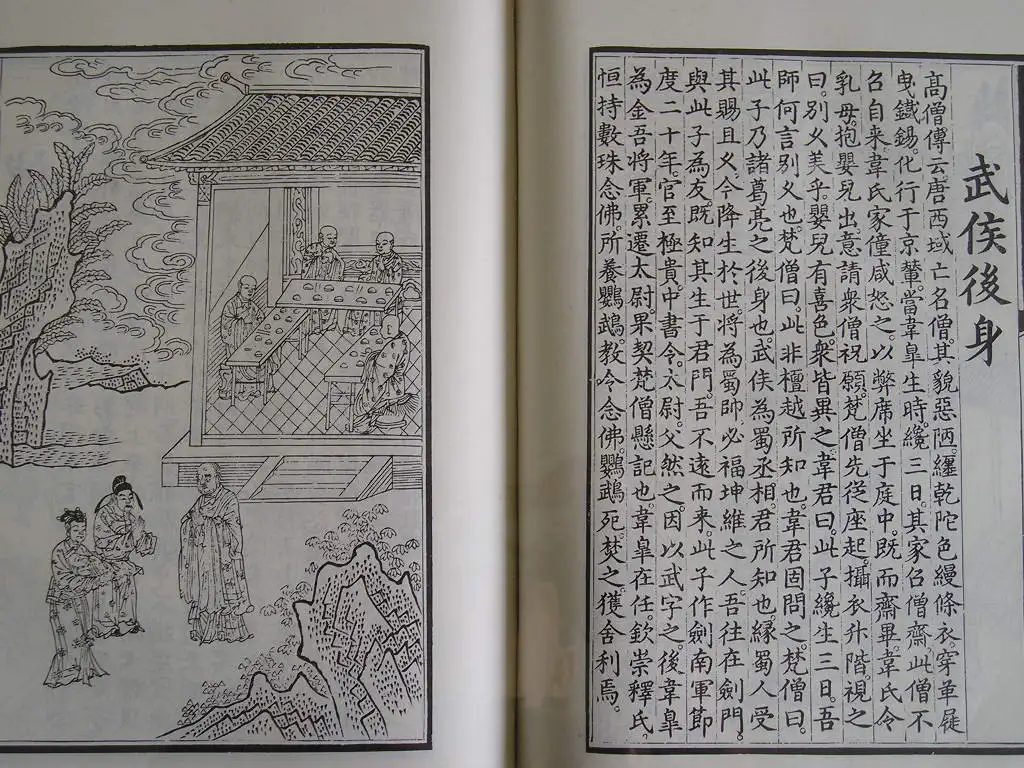 武侯後身
高僧傳云唐西域亡名僧。其貌惡陋。纏乾陀色縵條衣。穿革屣
曳鐵錫。化行于京輦。當韋臯生時。纔三日。其家召僧齋。此僧不
召自来。韋氏家僮咸怒之。以弊席坐于庭中。既而齋畢。韋氏令
乳母抱嬰兒出意請衆僧祝願。梵僧先從座起。攝衣升階。視之
曰。別久美乎。嬰兒有喜色。衆皆異之。韋君曰。此子纔生三日。吾
師何言別久也。梵僧曰。此非檀越所知也。韋君固問之。梵僧曰。
此子乃諸葛亮之後身也。武侯為蜀丞相。君所知也。縁蜀人受
其賜且久。今降生於世。將為蜀帥。必福坤維之人。吾往在劍門。
與此子為友。既知其生于君門。吾不遠而来。此子作劍南軍節
度二十年。官至極貴。中書令。太尉。父然之。因以武字之。後韋臯
為金吾將軍。累遷太尉。果契梵僧懸記也。韋臯在任。欽崇釋氏
恒持數珠念佛。所養鸚鵡。教令念佛。鸚鵡死。焚之。獲舍利焉。